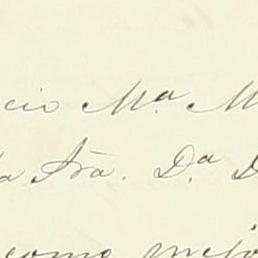 cio M.ª M
a Sra. D.ª D
como mejo